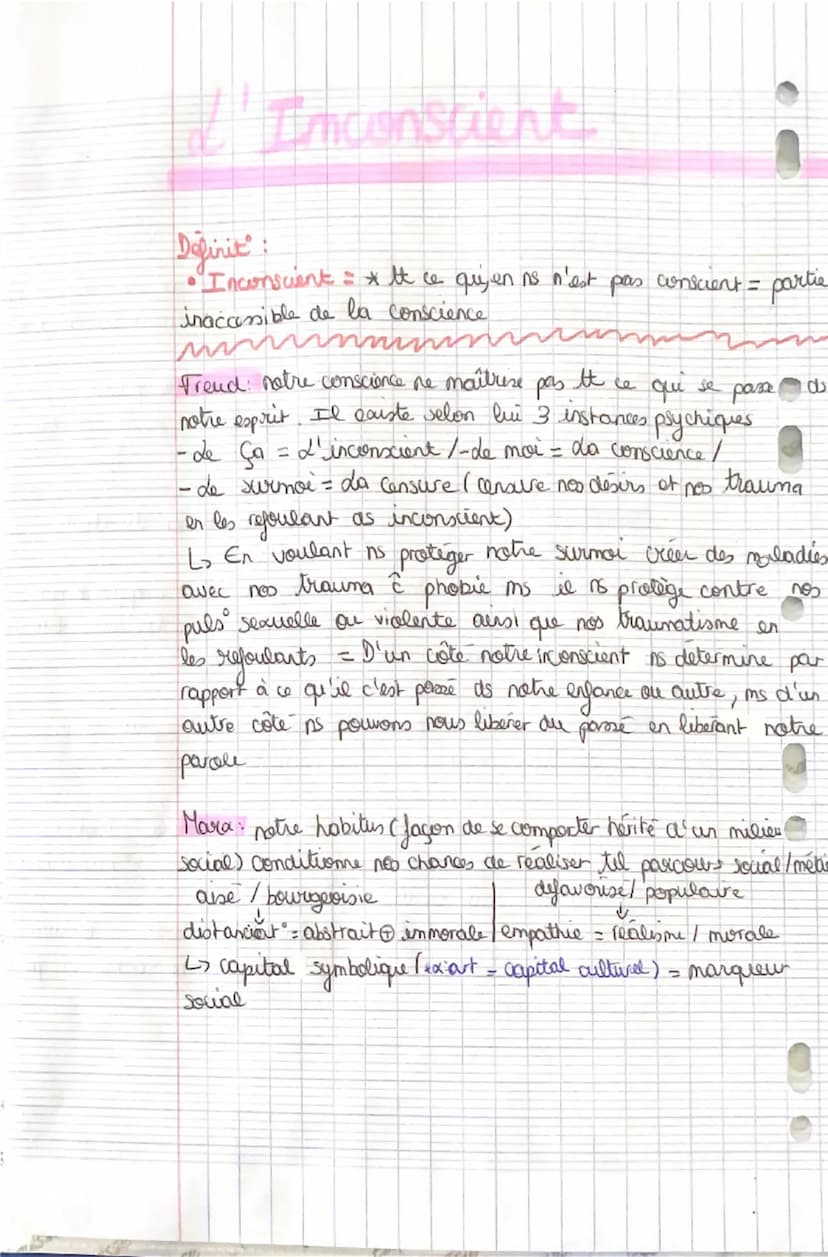 L'Inconscient
Définit° :
• Inconscient = * tt ce qui, en ns n'est pas conscient = partie
inaccessible de la conscience
Freud: notre conscience ne maîtrise pas tt ce qui se passe ds
notre esprit. Il existe selon lui 3 instances psychiques
- Le Ça = L'inconscient / - Le moi = La conscience /
- Le surmoi = La censure (censure nos désirs et nos trauma
en les refoulant as inconscient)
↳ En voulant ns protéger notre surmoi créer des maladies
avec nos trauma ĉ phobie ms il ns protège contre nos
puls° sexuelle ou violente ainsi que nos traumatisme en
les refoulants = D'un côté notre inconscient ns détermine par
rapport à ce qu'il c'est passé ds notre enfance ou autre, ms d'un
autre côté ns pouvons nous libérer du passé en libérant notre
parole
Marx: notre habitus (façon de se comporter hérité d'un milieu
social) conditionne nos chances de réaliser tel parcours social/méti
aisé / bourgeoisie | défavorisé / populaire
↓ ↓
distanciat° = abstrait ⊕ immorale | empathie = réalisme / morale
↳ capital symbolique (ex: art = capital culturel) = marqueur
social